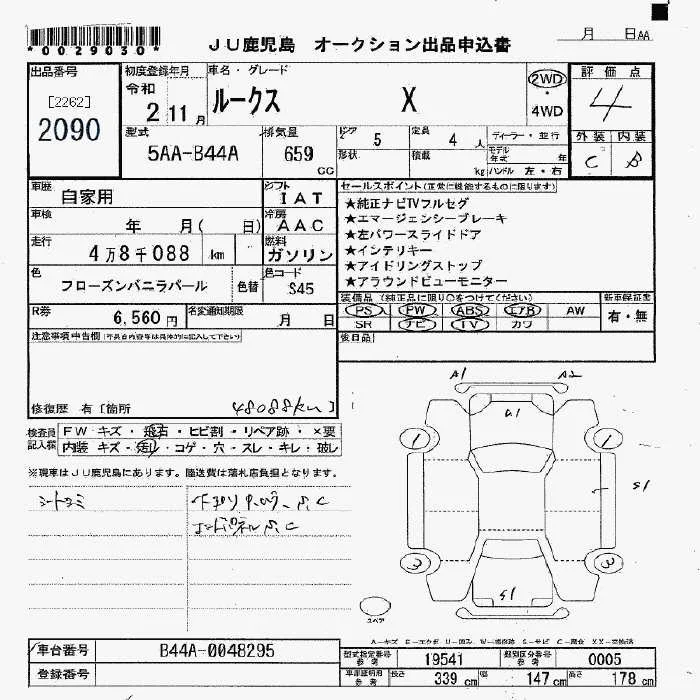 *0029030*
JU鹿児島 オークション出品申込書
月 日AA
出品番号
[2262]
2090
初度登録年月
令和
2 11月
車名・グレード
ルークス X
2WD
・
4WD
評価点
4
外装 内装
C B
型式
5AA-B44A
排気量
659
CC
ドア 5
形状
定員 4人
積載 kg
ディーラー・並行
モデル年式 年
ハンドル 左・右
車歴 自家用
車検 年 月( 日)
走行 4万8千088 km
色 フローズンバニラパール 色替
シフト IAT
冷房 AAC
燃料 ガソリン
色コード S45
セールスポイント(正常に機能するものに限ります)
★純正ナビTVフルセグ
★エマージェンシーブレーキ
★左パワースライドドア
★インテリキー
★アイドリングストップ
★アラウンドビューモニター
R券 6,560円
名変通知期限 月 日
装備品(純正品に限り○をつけてください)
PS PW ABS エアB AW
SR ナビ TV カワ
新車保証書
有・無
後日品
注意事項申告欄
修復歴 有 [箇所 48088km ]
検査員記入欄
FW キズ・飛石・ヒビ割・リペア跡・×要
内装 キズ・汚れ・コゲ・穴・スレ・キレ・破レ
※現車はJU鹿児島にあります。陸送費は落札店負担となります。
A1 A2
A1
1 1
S1
3 3
S1
スペア
車台番号 B44A-0048295
登録番号
型式指定番号 参考 19541
類別区分番号 参考 0005
車庫証明用 参考 長さ 339 cm 幅 147 cm 高さ 178 cm